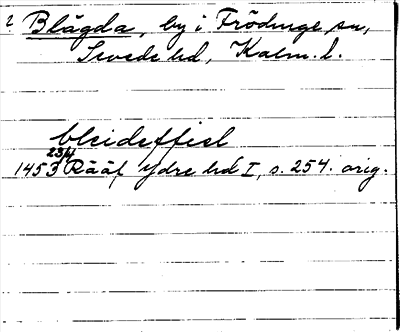 ? Blågda, by i Frödinge sn,
Sevede hd, Kalm. l.
bleidsffiel
23/1
1453 Rääf Ydre hd I, s. 254. orig.